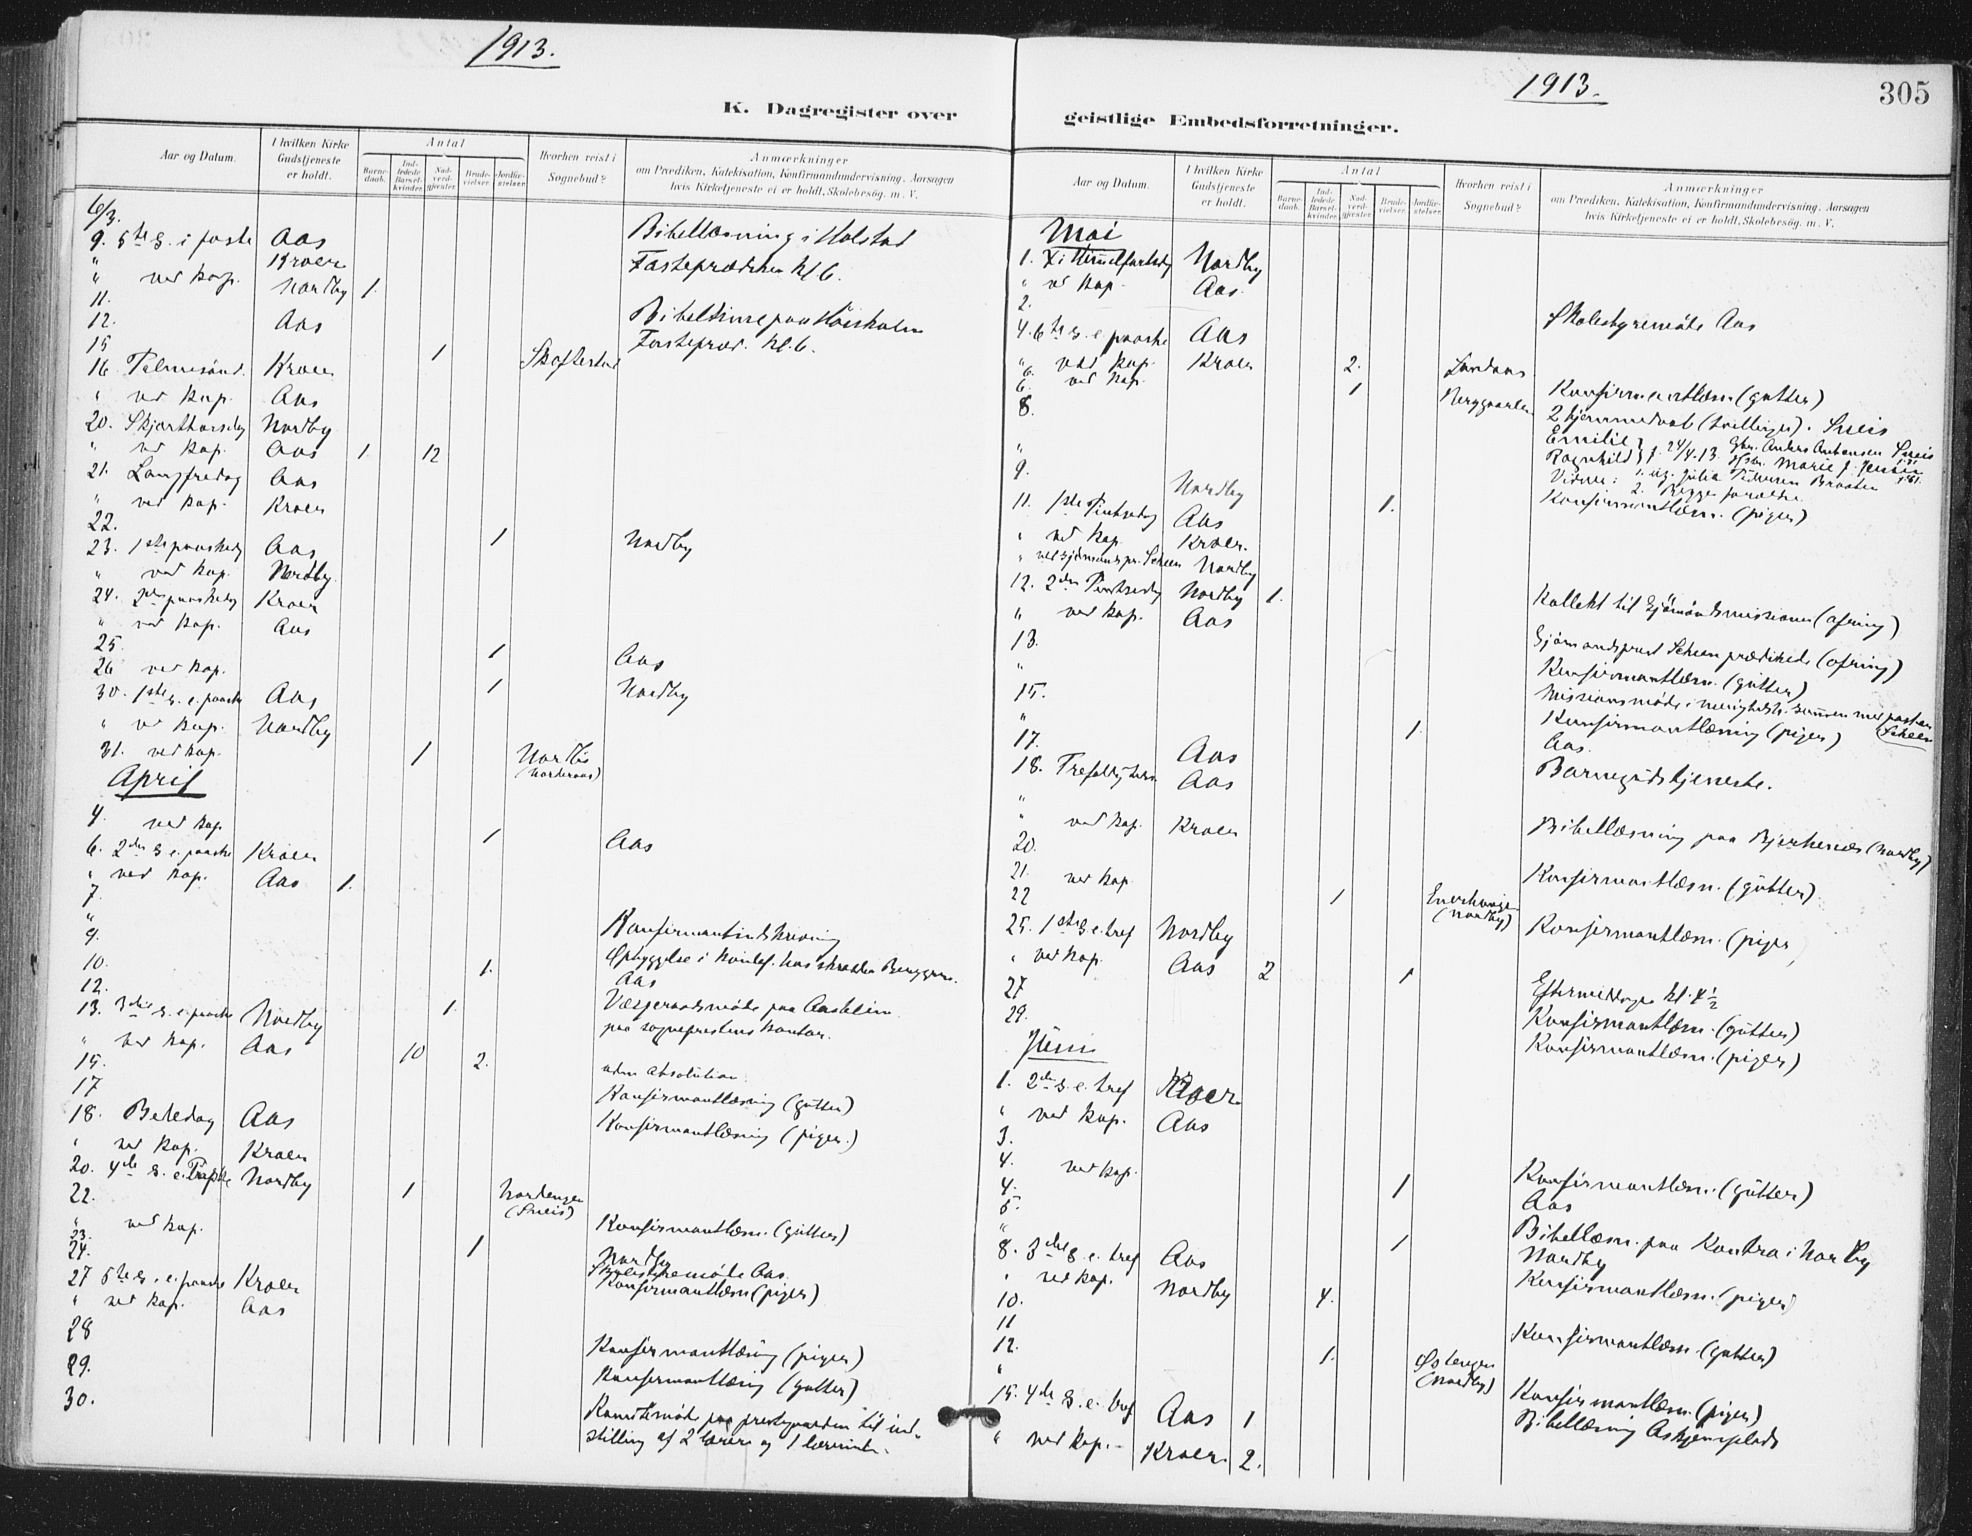 1913.
K. Dagregister over
Aar og Datum.
I hvilken Kirke Gudstjeneste er holdt.
Antal
Barnedaab.
Indledede Barselkvinder.
Nadverdgjester.
Brudevielser.
Jordfæstelser.
Hvorhen reist i Sognebud?
Anmærkninger
om Prædiken, Katekisation, Konfirmandundervisning. Aarsagen
hvis Kirketjeneste ei er holdt, Skolebesög. m. V.
6/3. Bibellæsning i Holstad
9. 5te s. i faste Aas Fasteprædiken kl 6.
" Kroer
" ved kap. Nordby 1.
11. Bibeltime paa
12. Aas Fastepræd. kl. 6.
15 1 Skoftestad
16. Palmesönd. Kroer
" ved kap. Aas
20. Skjærthorsdag Nordby
" ved kap. Aas 1. 12
21. Langfredag Aas
" ved kap. Kroer
22. 1 Nordby
23. 1ste paaskedag Aas
" ved kap. Nordby.
24. 2den paaskedag Kroer
" ved kap. Aas
25. 1 Aas
26 ved kap. 1 Nordby
30. 1ste s. e. paaske Aas
" ved kap. Nordby
31. ved kap. 1 Nordby
(Norderaas)
April
4. ved kap 1 Aas
6. 2den s e. paaske Kroer
" ved kap. Aas 1.
7.
" Konfirmantindskrivning
9. Opbyggelse i
10. 1. Aas
12. Værgeraadsmöde paa Aasheim
13. 3die s. e. paaske Nordby 1. paa sogneprestens kontor.
" ved kap. Aas 10 2. uden absolution.
15. Konfirmantlæsning (gutter)
17 Konfirmantlæsning (piger.)
18. Bededag Aas
" ved kap. Kroer
20. 4de s. e. Paaske Nordby
22. 1 Nordengen
(Sneis)
" ved kap. Konfirmantlæsn. (gutter)
23. 1 Nordby
24. Skolestyremöte Aas.
Konfirmantlæsn (piger)
27 5te s. e. paaske Kroer
" ved kap. Aas
28 Konfirmantlæsning (piger)
29. Konfirmantlæsning (gutter)
30. möde paa prestegaarden til ind-
stilling af 2 lærere og 1 lærerinde.
1913.
305
geistlige Embedsforretninger.
Aar og Datum.
I hvilken Kirke Gudstjeneste er holdt.
Antal
Barnedaab.
Indledede Barselkvinder.
Nadverdgjester.
Brudevielser.
Jordfæstelser.
Hvorhen reist i Sognebud?
Anmærkninger
om Prædiken, Katekisation, Konfirmandundervisning. Aarsagen
hvis Kirketjeneste ei er holdt, Skolebesög. m. V.
Mai
1. Himmelfartsdg Nordby
" vd kap. Aas.
2. Skolestyremöte Aas
4. 6te s. e paaske Aas
" ved kap. Kroer 2.
6. ved kap. 1
6. Konfirmantlæsn (gutter)
8. 2 hjemmedaab (tvillinger). Sneis
Emilie } f. 24/4.13. Gbr. Anders Antonsen Sneis
Ragnhild } Hstr. Marie J. Jensen
Vidner: 1. ug. Julia Pedersen Braaten
2. Begge forældre
" Konfirmantlæsn. (piger)
9.
Nordby
11. 1ste Pintsedag Aas 1.
" ved kap. Kroer.
" ved sjömandspr. Scheen Nordby
12. 2den Pintsedag Nordby 1. Kollekt til Sjömandsmissionen (ofring)
" ved kap. Aas
13. Sjömandsprest Scheen prædikede (ofring)
" Konfirmantlæsn. (gutter)
15. Missionsmöde i
Scheen
" Konfirmantlæsning (piger)
17. Aas 1. Aas.
18. Trefoldighedss. Aas Barnegudstjeneste.
"
" ved kap. Kroer
20. Bibellæsning paa Bjerkenæs (Nordby)
21. ved kap Konfirmantlæsn. (gutter)
22 1
(Nordby)
Konfirmantlæsn. (piger)
25. 1ste s. e. tref Nordby
" ved kap. Aas 2 1 Eftermiddagen kl. 4½
27 Konfirmantlæsn. (gutter)
29. Konfirmantlæsn. (piger)
Juni
1. 2den s. e. tref Kroer.
" ved kap. Aas
3. Konfirmantlæsn. (gutter)
4. ved kap. 1 Aas
4. Bibellæsn. paa Kontra i Nordby
5. 1 Nordby
" Konfirmantlæsn. (piger)
8. 3die s. e. tref Aas
" ved kap. Nordby 4.
10. Konfirmantlæsn (gutter)
11 1. Östengen
(Nordby)
12. Konfirmantlæsn. (piger)
" Bibellæsning Askjemsplads
15. 4de s. e. tref Aas 1
" ved kap. Kroer. 2.